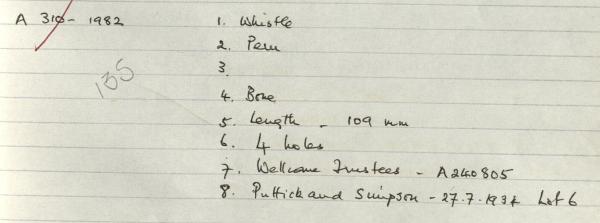 A 310 - 1982
1. Whistle
2. Peru
3.
135
4. Bone
5. Length - 109 mm
6. 4 holes
7. Wellcome Trustees - A240805
8. Puttick and Simpson - 27.7.1934 Lot 6